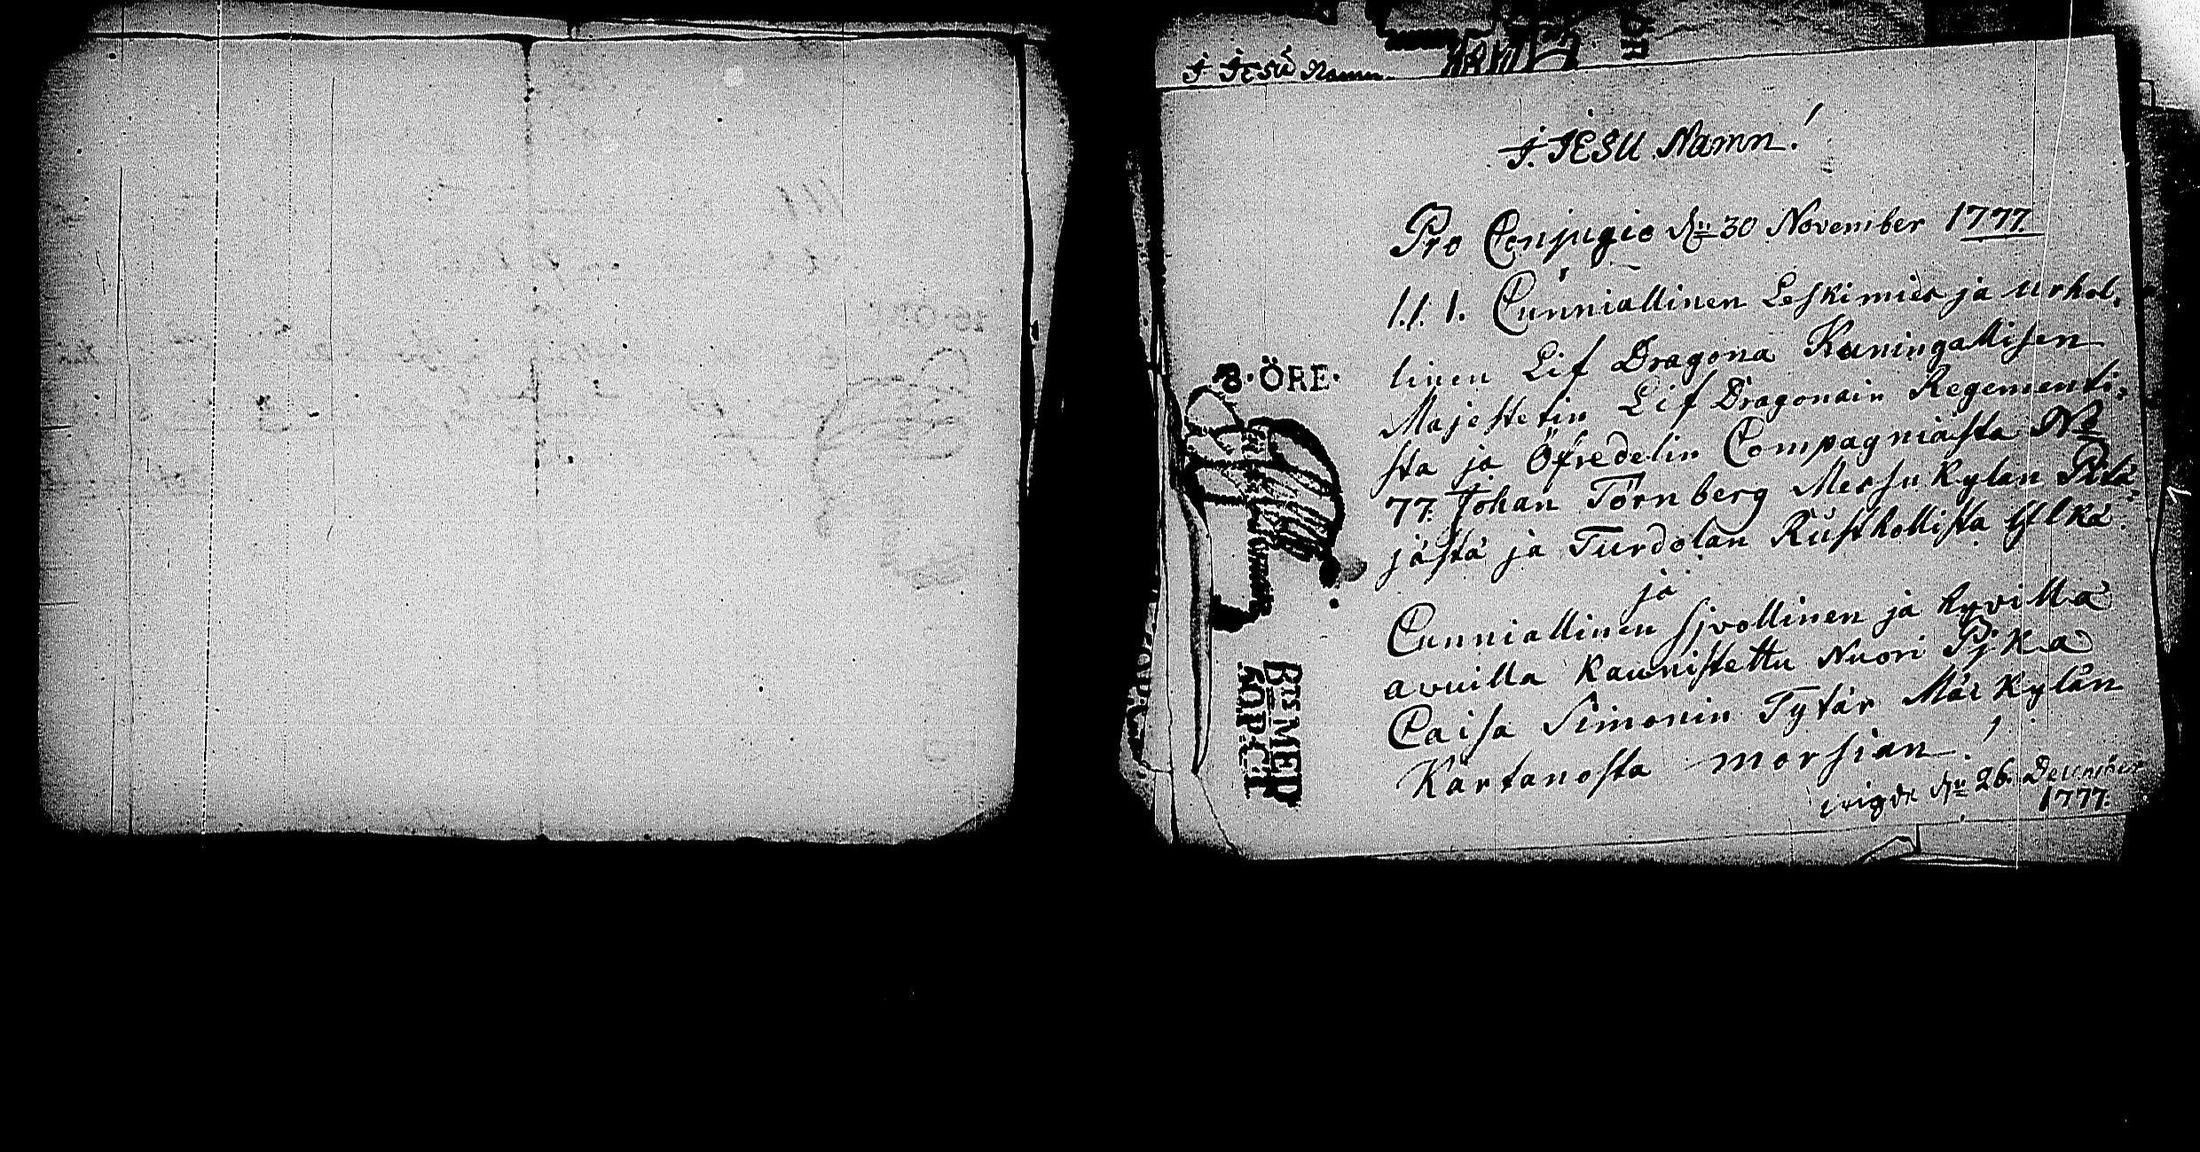 I JESU Namn
I. JESU Namn!
Pro Conjugio dn 30 November 1777.
1. 1. 1. Cunniallinen Leskimies ja urhol-
linen Lif Dragona Kuningallisen
Majestetin Lif Dragonain Regementi-
sta ja Öfredelin Compagniasta No
77. Johan Törnberg Messukylan Pitä-
jästä ja Turdolan Rusthollista Ylkä.
ja
Cunniallinen sjvollinen ja hyvillä
avuilla kaunistettu Nuori Pjka
Caisa Simonin Tytär Märkylän
Kartanosta morsian!
vigde dn 26. December
1777.
8·ÖRE·
BTS MEP
KOP·CT